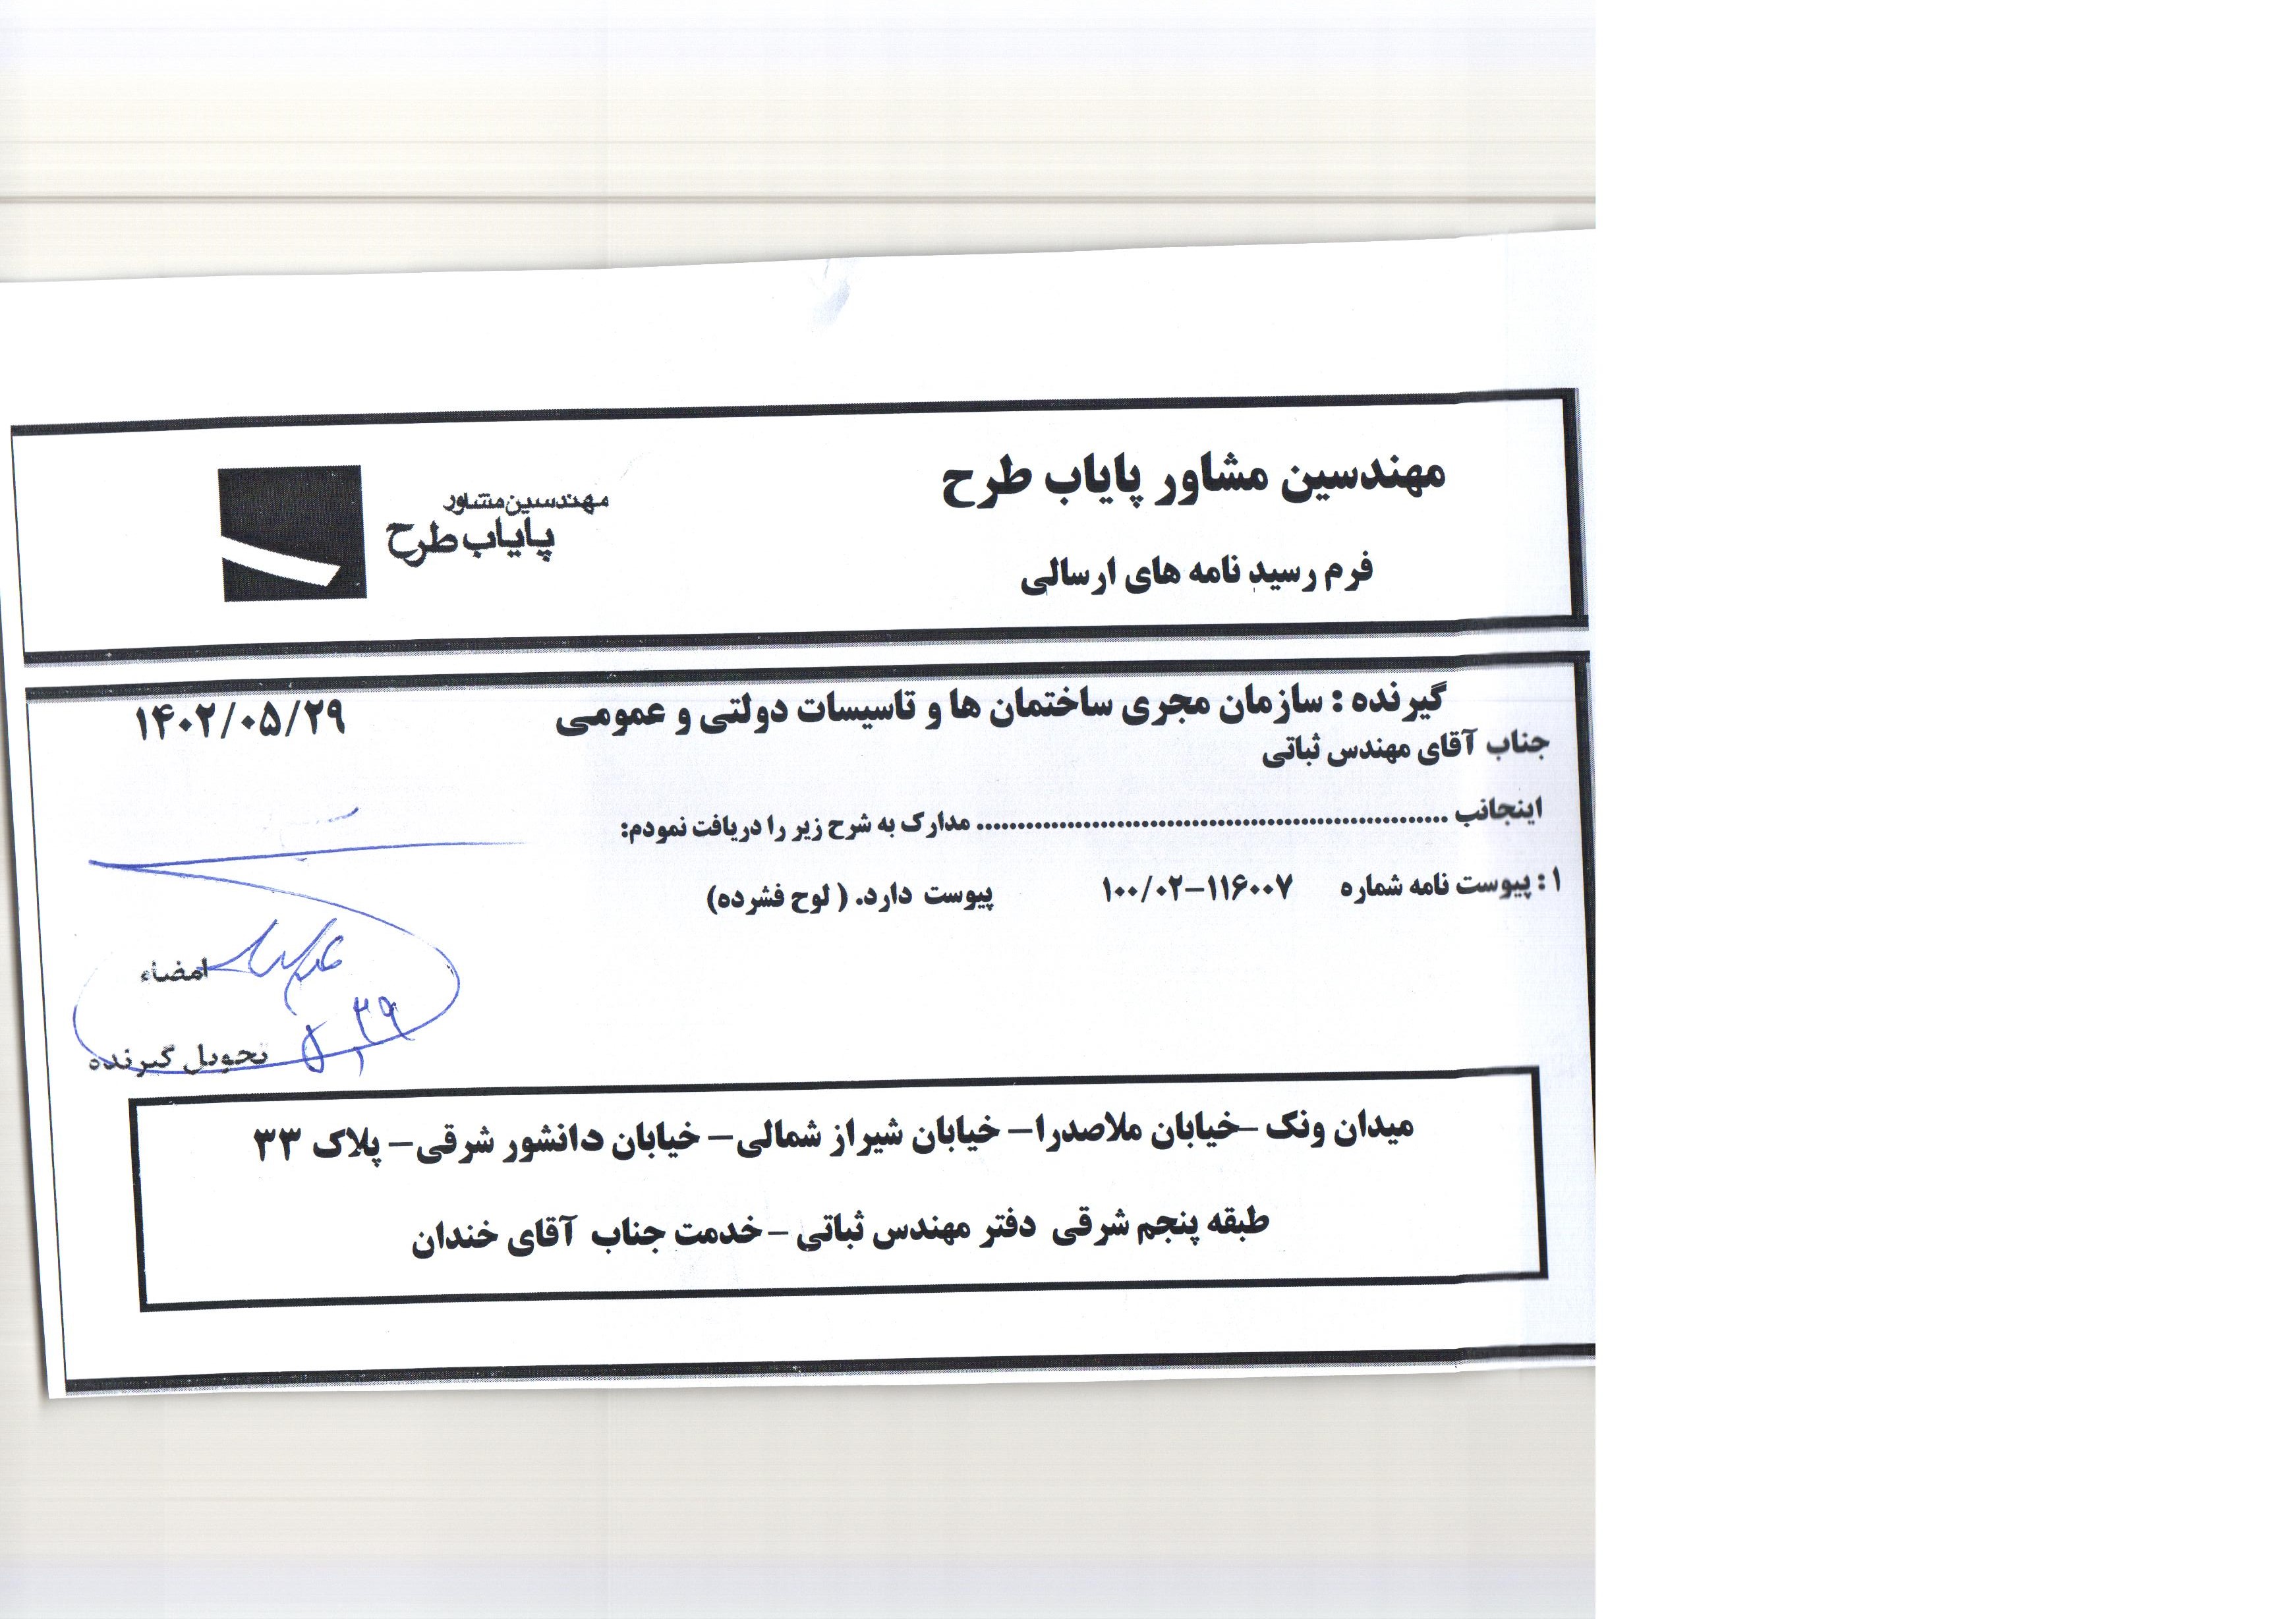 مهندسین مشاور پایاب طرح
فرم رسید نامه های ارسالی
مهندسین مشاور
پایاب طرح
گیرنده : سازمان مجری ساختمان ها و تاسیسات دولتی و عمومی
۱۴۰۲/۰۵/۲۹
جناب آقای مهندس ثباتی
اینجانب ........................................................... مدارک به شرح زیر را دریافت نمودم:
۱ : پیوست نامه شماره ۱۰۰/۰۲-۱۱۶۰۰۷ پیوست دارد. ( لوح فشرده)
امضاء
۵,۲۹
تحویل گیرنده
میدان ونک –خیابان ملاصدرا– خیابان شیراز شمالی– خیابان دانشور شرقی– پلاک ۳۳
طبقه پنجم شرقی دفتر مهندس ثباتی – خدمت جناب آقای خندان